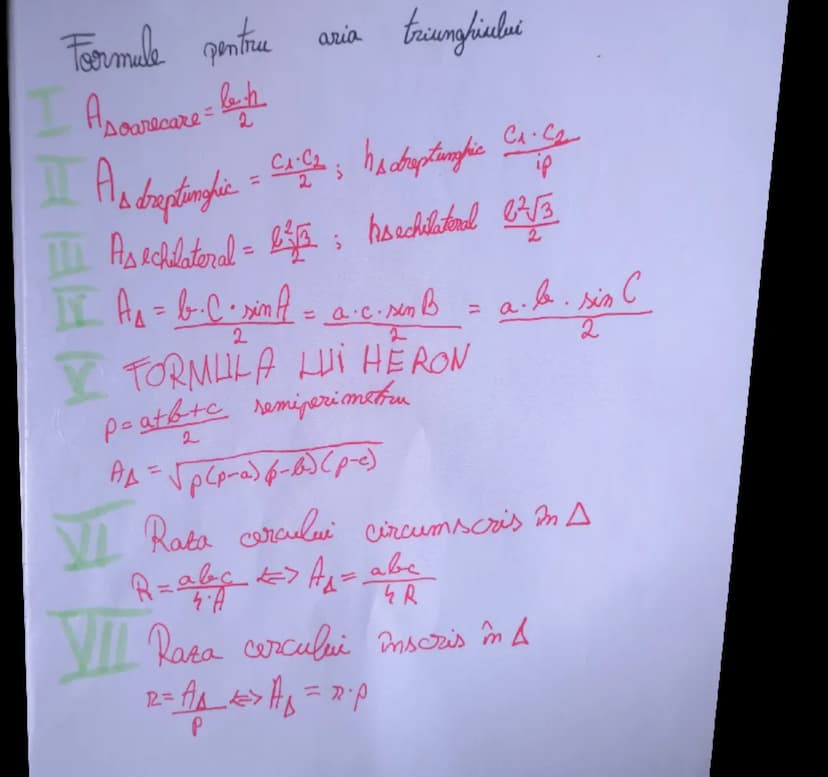 Formule pentru aria triunghiului
I A△oarecare = b·h/2
II A△dreptunghic = C₁·C₂/2 ; h△dreptunghic C₁·C₂/ip
III A△echilateral = l²√3/2 ; h△echilateral l²√3/2
IV A△ = b·C·sinA/2 = a·c·sinB/2 = a·b·sinC/2
V FORMULA LUI HERON
p = a+b+c/2 semiperimetru
A△ = √p(p-a)(p-b)(p-c)
VI Raza cercului circumscris în △
R = abc/4·A <=> A△ = abc/4R
VII Raza cercului înscris în △
r = A△/p <=> A△ = r·p